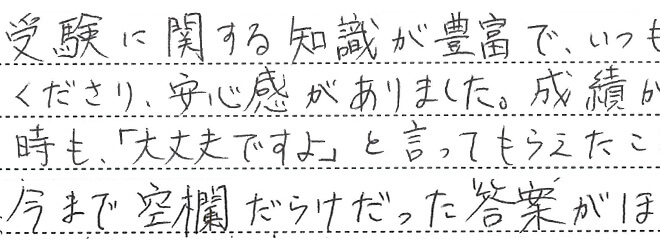 受験に関する知識が豊富で、いつも
くださり、安心感がありました。成績が
時も、「大丈夫ですよ」と言ってもらえたこ
今まで空欄だらけだった答案がほ